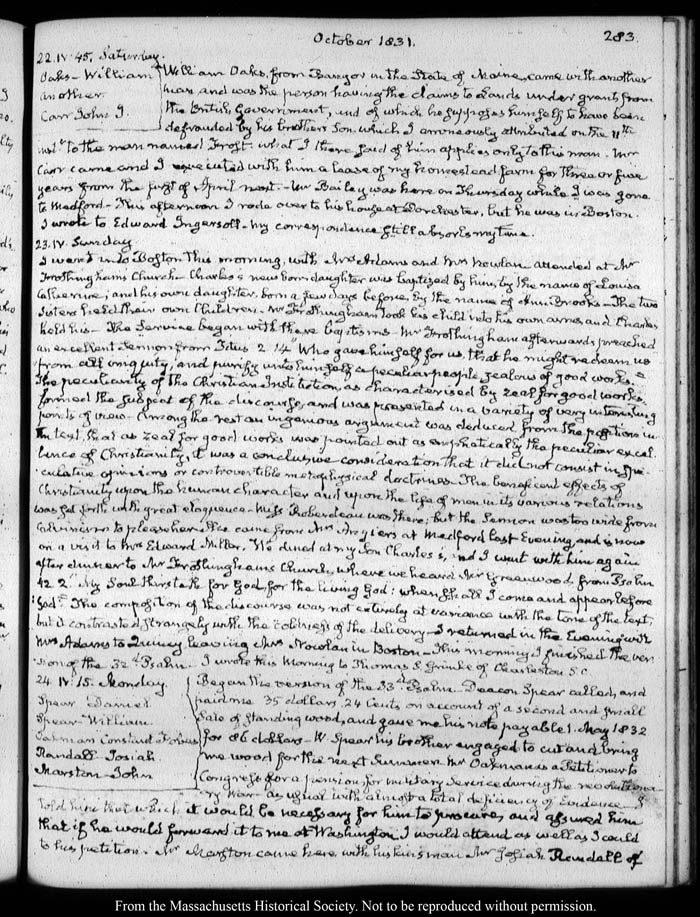 October 1831.
283.
22. IV. 45. Saturday.
Oaks - William
another
Carr John J.
William Oaks, from Bangor in the State of Maine, came with another
man and was the person having the claims to Lands under grants from
the British Government, and of which he supposes himself to have been
defrauded by his brother's Son which I erroneously attributed on the 11th
inst. to the man named Frost. what I there said of him applies only to this man. Mr
Carr came and I executed with him a lease of my homestead farm for three or five
years from the first of April next - Mr Bailey was here on Thursday while I was gone
to Medford - This afternoon I rode over to his house at Dorchester, but he was in Boston.
I wrote to Edward Ingersoll - my correspondence still absorbs my time.
23. IV. Sunday
I went in to Boston this morning, with Mrs Adams and Mrs Nowlan attended at Mr
Frothingham's Church - Charles's new born daughter was baptized by him, by the name of Louisa
Catherine; and his own daughter, born a few days before, by the name of Ann Brooks - The two
Sisters held their own Children - Mr Frothingham took his child into his own arms and Charles
held his - The Service began with these baptisms - Mr Frothingham afterwards preached
an excellent Sermon from Titus 2. 14 "Who gave himself for us, that he might redeem us
from all iniquity, and purify unto himself a peculiar people, zealous of good works."
The peculiarity of the Christian Institution, as characterised by zeal for good works,
formed the subject of the discourse, and was presented in a variety of very interesting
points of view - Among the rest an ingenious argument was deduced from the position in
the text, that as zeal for good works was pointed out as emphatically the peculiar excel-
lence of Christianity, it was a conclusive consideration that it did not consist in spe-
culative opinions or controvertible metaphysical doctrines - The beneficent effects of
Christianity upon the human character and upon the life of man in its various relations
was set forth with great eloquence - Miss Roberdeau was there; but the Sermon was too wide from
Calvinism to please her. She came from Mrs Angier's at Medford last Evening, and is now
on a visit to Mrs Edward Miller. We dined at my Son Charles's, and I went with him again
after dinner to Mr Frothingham's Church, where we heard Mr Greenwood, from Psalm
42. 2. "My Soul thirsteth for God, for the living God: when shall I come and appear before
God." The composition of the discourse was not entirely at variance with the tone of the text,
but it contrasted strangely with the coldness of the delivery - I returned in the Evening with
Mrs Adams to Quincy leaving Mrs Nowlan in Boston - This morning I finished the ver-
sion of the 32d Psalm. I wrote this Morning to Thomas S. Grimke of Charleston S.C.
24. IV. 15. Monday
Spear Daniel
Spear William
Oakman Constant
Randall Josiah
Marston John
Began the version of the 33d Psalm - Deacon Spear called, and
paid me 35 dollars, 24 Cents on account of a second and small
Sale of standing wood, and gave me his note payable 1. May 1832
for 86 dollars - W. Spear his brother engaged to cut and bring
me wood for the next Summer. Mr Oakman is a Petitioner to
Congress for a pension, for military Service during the revolutiona-
ry War - as usual with almost a total deficiency of Evidence. I
told him that which it would be necessary for him to procure, and assured him
that if he would forward it to me at Washington I would attend as well as I could
to his petition. Mr Marston came here with his kinsman Mr Josiah Randall of
From the Massachusetts Historical Society. Not to be reproduced without permission.